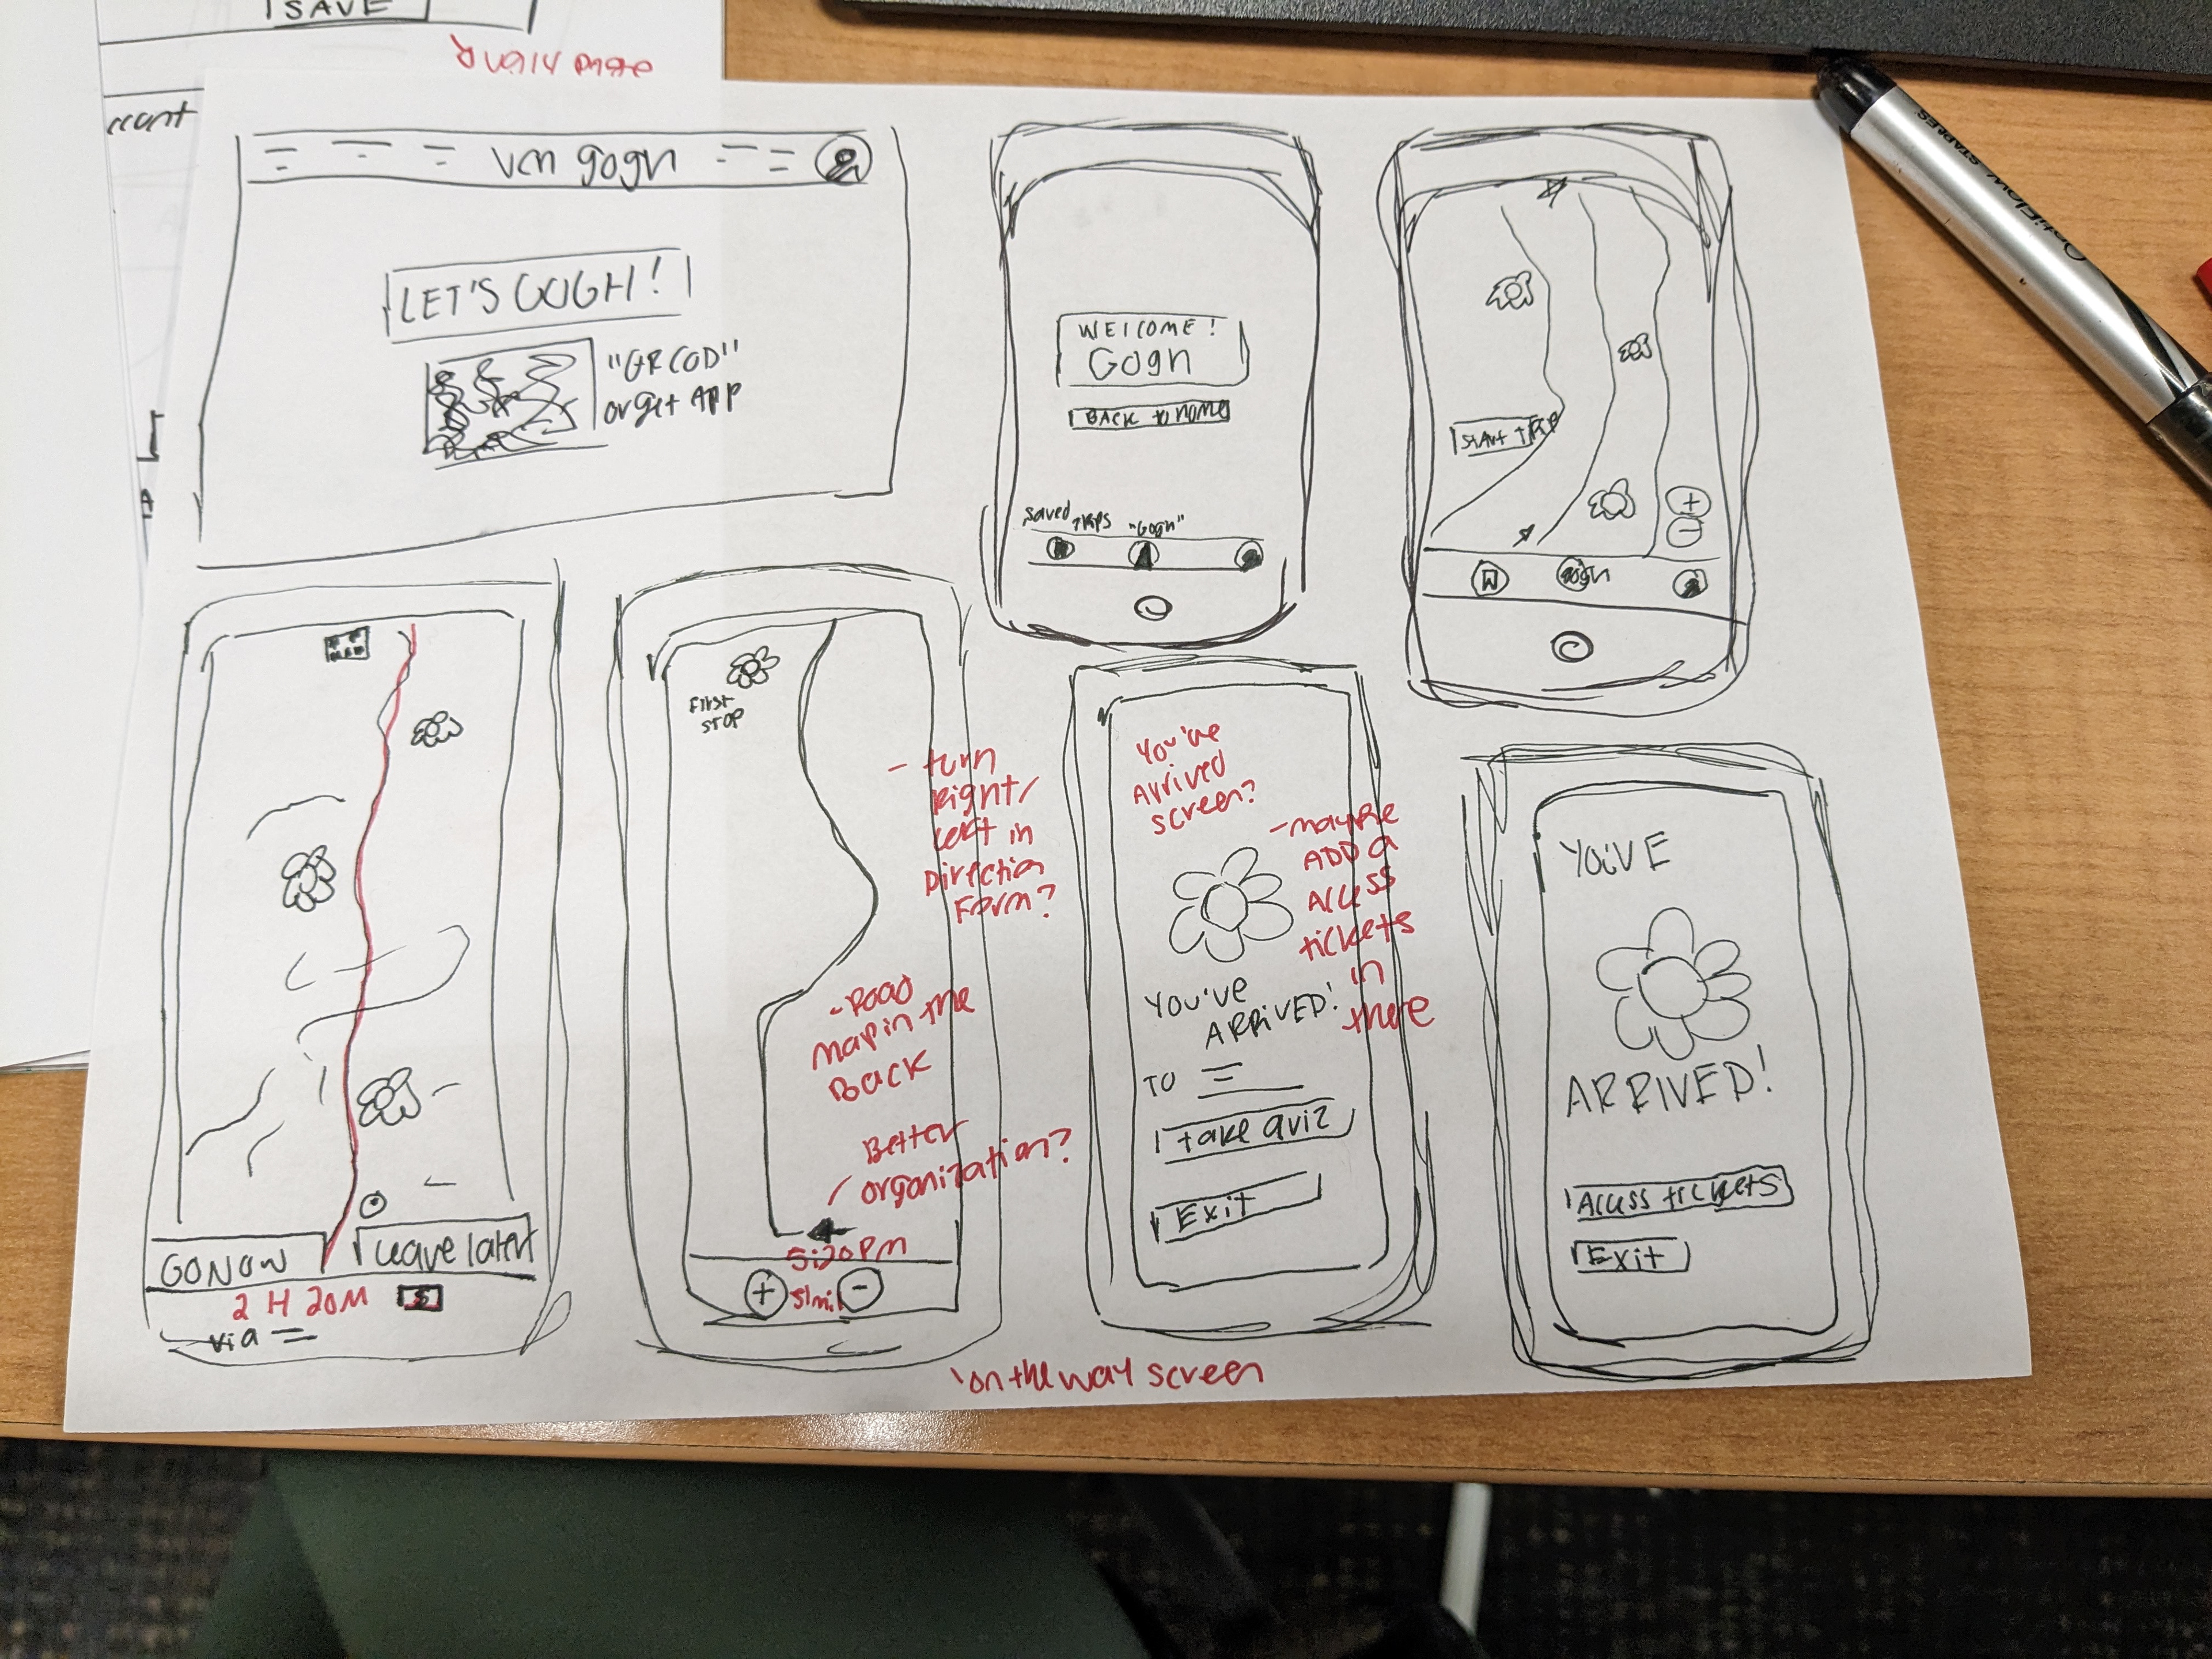 SAVE
van gogh
LET'S GOGH!
"QR COD"
or get APP
WELCOME!
Gogh
BACK to HOME
saved
TRIPS
"Gogh"
START TRIP
+
-
gogh
STAPLES
OptiFlow
GO NOW
leave later
2 H 20M
$
via
FIRST
STOP
- turn
Right/
Left in
Direction
Form?
- Road
map in the
Back
Better
organization?
5:20 PM
+
51mi.
-
You've
Arrived
screen?
- maybe
ADD a
Access
tickets
in
there
YOU'VE
ARRIVED!
TO
take quiz
Exit
'on the way screen
YOU'VE
ARRIVED!
Access tickets
Exit